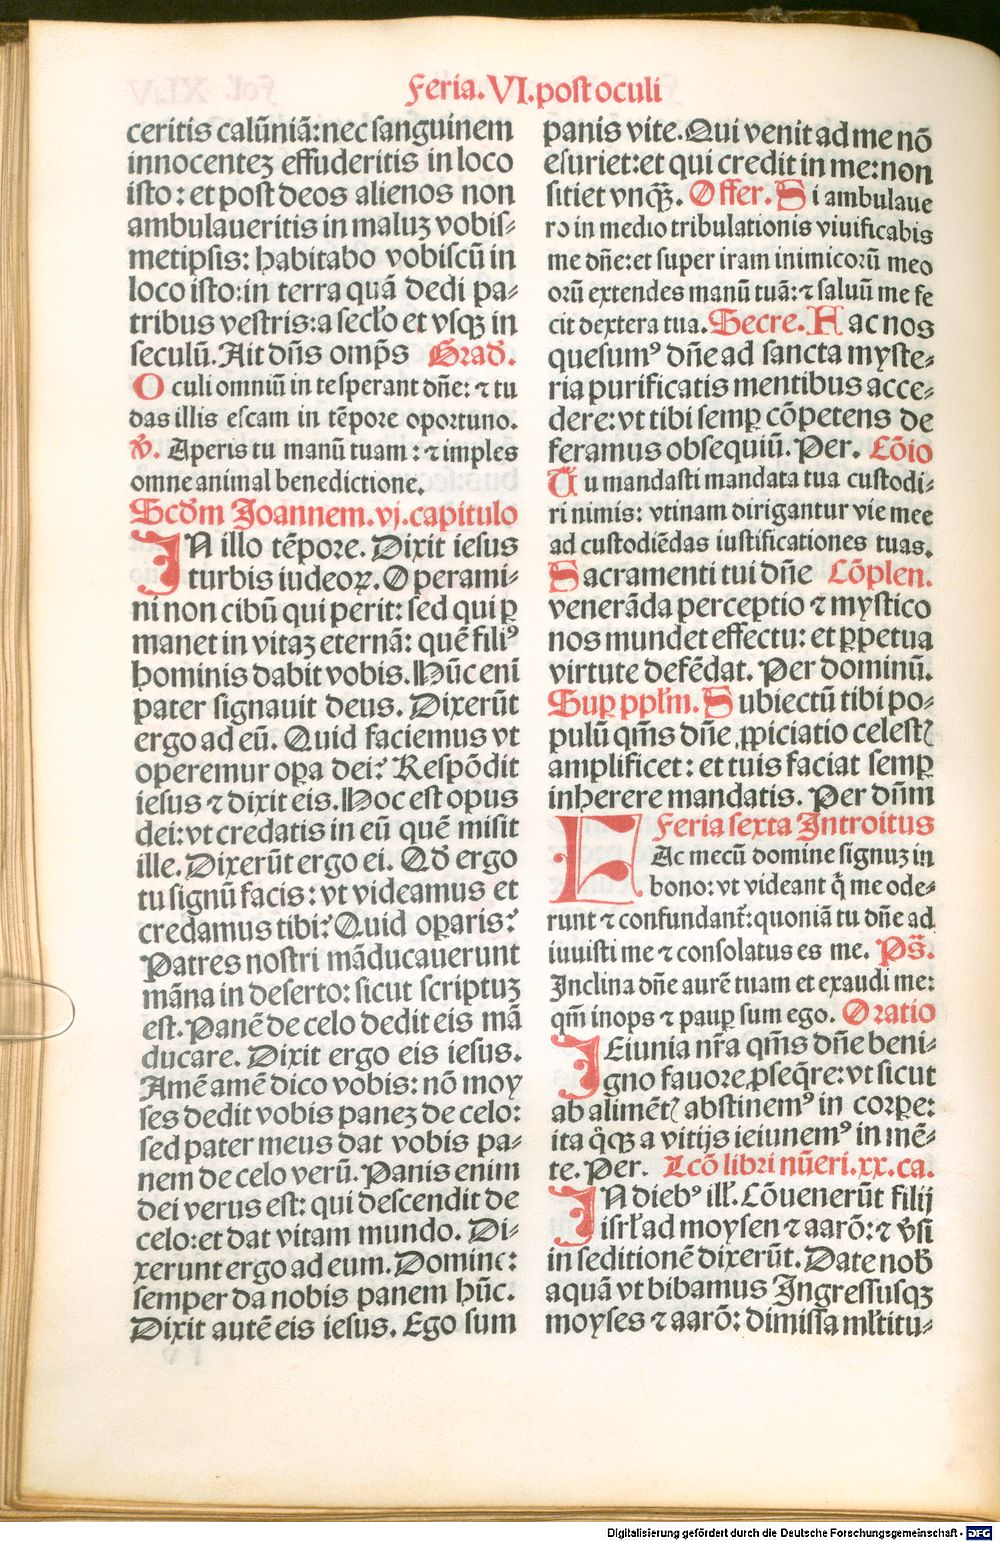 Feria. VI. post oculi
ceritis calūniā: nec sanguinem
innocenteʒ effuderitis in loco
isto: et post deos alienos non
ambulaueritis in maluʒ vobis⸗
metipsis: habitabo vobiscū in
loco isto: in terra quā dedi pa⸗
tribus vestris: a seclo et vsqꝫ in
seculū. Ait dn̄s omp̄s Grad.
Oculi omniū in te sperant dn̄e: ⁊ tu
das illis escam in tēpore oportuno.
℣. Aperis tu manū tuam: ⁊ imples
omne animal benedictione.
Scd̄m Joannem. vj. capitulo
IN illo tēpore. Dixit iesus
turbis iudeoꝝ. Operami⸗
ni non cibū qui perit: sed qui ꝑ
manet in vitaʒ eternā: quē filiꝰ
hominis dabit vobis. Hūc eni
pater signauit deus. Dixerūt
ergo ad eū. Quid faciemus vt
operemur oꝑa dei? Respōdit
iesus ⁊ dixit eis. Hoc est opus
dei: vt credatis in eū quē misit
ille. Dixerūt ergo ei. Qd̄ ergo
tu signū facis: vt videamus et
credamus tibi? Quid oꝑaris?
Patres nostri māducauerunt
māna in deserto: sicut scriptuʒ
est. Panē de celo dedit eis mā
ducare. Dixit ergo eis iesus.
Amē amē dico vobis: nō moy
ses dedit vobis paneʒ de celo:
sed pater meus dat vobis pa⸗
nem de celo verū. Panis enim
dei verus est: qui descendit de
celo: et dat vitam mundo. Di⸗
xerunt ergo ad eum. Domine:
semper da nobis panem hūc.
Dixit autē eis iesus. Ego sum
panis vite. Qui venit ad me nō
esuriet: et qui credit in me: non
sitiet vnqꝫ. Offer. Si ambulaue
ro in medio tribulationis viuificabis
me dn̄e: et super iram inimicorū meo
orū extendes manū tuā: ⁊ saluū me fe
cit dextera tua. Secre. Hac nos
quesumꝰ dn̄e ad sancta myste⸗
ria purificatis mentibus acce⸗
dere: vt tibi semꝑ cōpetens de
feramus obsequiū. Per. Cōio
Tu mandasti mandata tua custodi⸗
ri nimis: vtinam dirigantur vie mee
ad custodiēdas iustificationes tuas.
Sacramenti tui dn̄e Cōplen.
venerāda perceptio ⁊ mystico
nos mundet effectu: et ꝑpetua
virtute defēdat. Per dominū.
Suꝑ ppl̄m. Subiectū tibi po⸗
pulū qm̄s dn̄e ꝓpiciatio celestꝭ
amplificet: et tuis faciat semꝑ
inherere mandatis. Per dn̄m
Feria sexta Introitus
FAc mecū domine signuʒ in
bono: vt videant q̄ me ode⸗
runt ⁊ confundant̄: quoniā tu dn̄e ad
iuuisti me ⁊ consolatus es me. Ps̄.
Inclina dn̄e aurē tuam et exaudi me:
qm̄ inops ⁊ pauꝑ sum ego. Oratio
IEiunia nr̄a qm̄s dn̄e beni⸗
gno fauore ꝓseq̄re: vt sicut
ab alimētꝭ abstinemꝰ in corꝑe:
ita q̄qꝫ a vitijs ieiunemꝰ in mē⸗
te. Per. Lcō libri nūeri. xx. ca.
IN diebꝰ ill̄. Cōuenerūt filij
isrl̄ ad moysen ⁊ aarō: ⁊ v̄si
in seditionē dixerūt. Date nob̄
aquā vt bibamus Ingressusqʒ
moyses ⁊ aarō: dimissa ml̄titu⸗
Digitalisierung gefördert durch die Deutsche Forschungsgemeinschaft - DFG